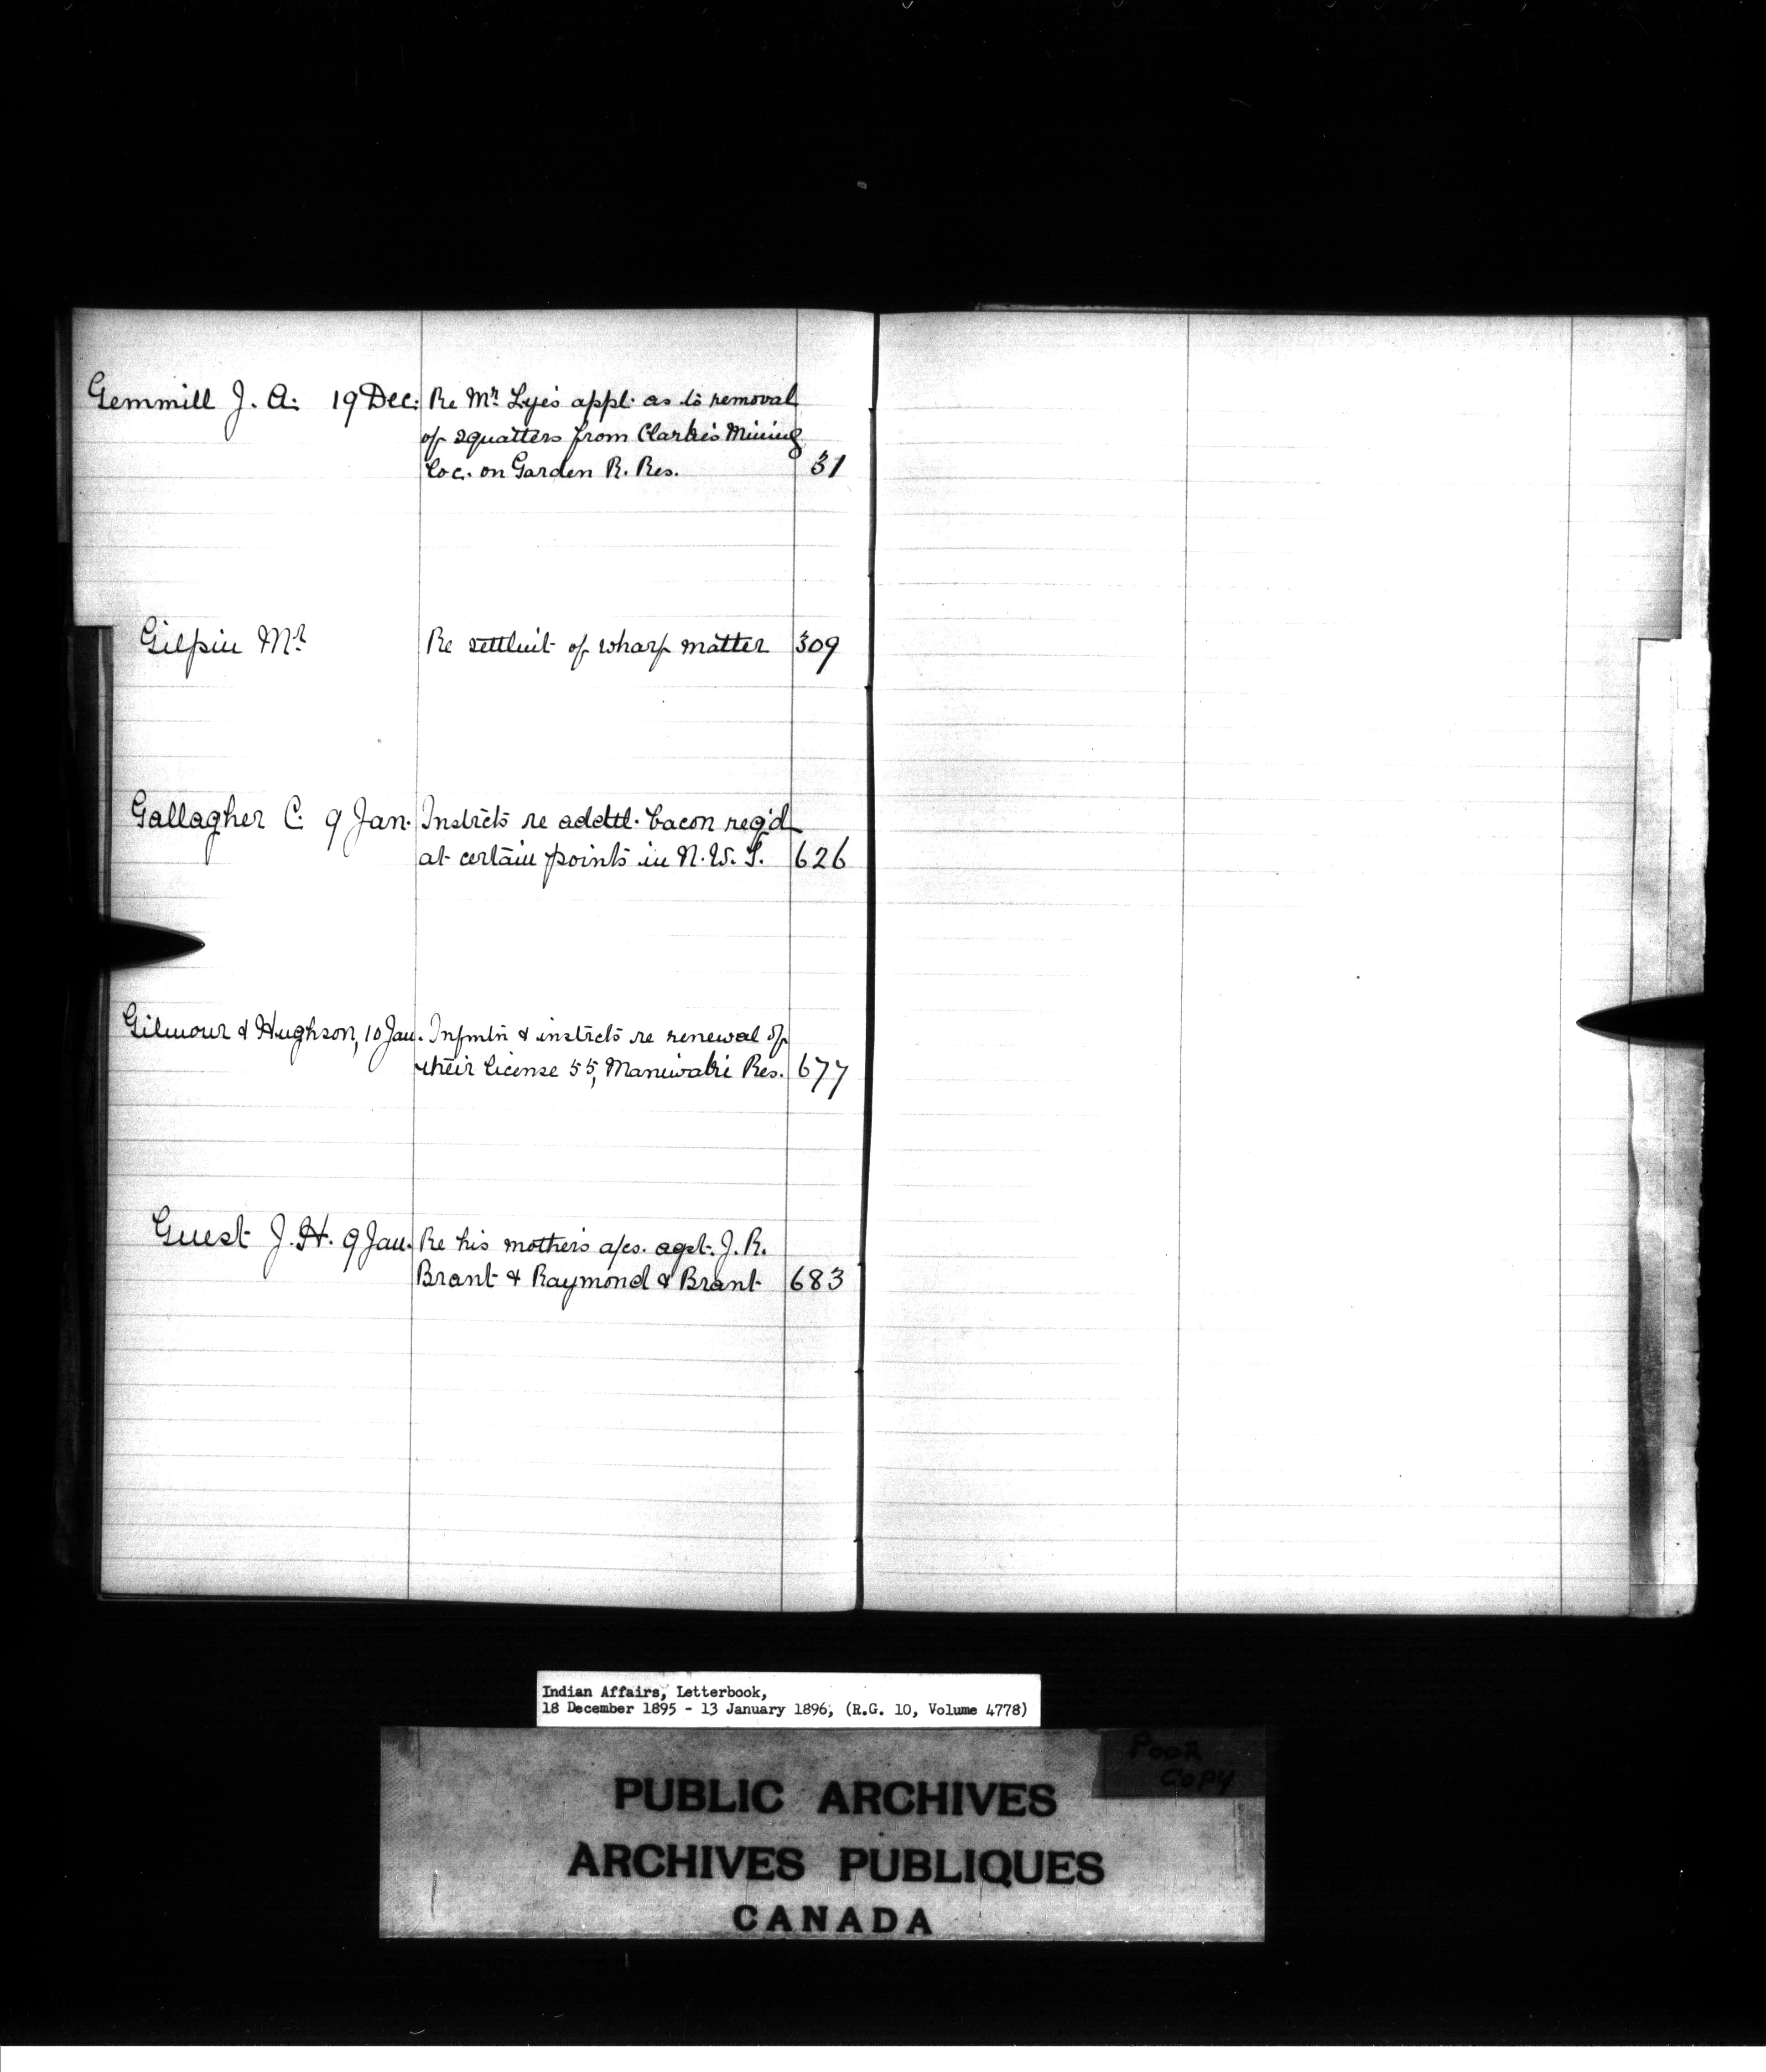 Gemmill J. A. 19 Dec. Re Mr. Lye's appl. as to removal
of squatters from Clarke's Mining
Loc. on Garden R. Res. 31
Gilpin Mr. Re settlmt of wharf matter 309
Gallagher C. 9 Jan. Instrcts re addtl. bacon req'd
at certain points in N.W.T. 626
Gilmour & Hughson, 10 Jan. Infmtn & instrcts re renewal of
their license 55, Maniwaki Res. 677
Guest J. H. 9 Jan. Re his mother's a/cs. agst. J. R.
Brant & Raymond & Brant 683
Indian Affairs, Letterbook,
18 December 1895 - 13 January 1896, (R.G. 10, Volume 4778)
POOR
COPY
PUBLIC ARCHIVES
ARCHIVES PUBLIQUES
CANADA